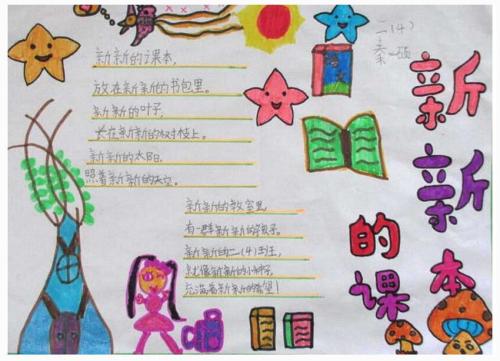 二(4)
新新的课本
新新的课本,
放在新新的书包里。
新新的叶子,
长在新新的树枝上。
新新的太阳,
照着新新的天空。
新新的教室里
有一群新新的孩子。
新新的二(4)班,
就像新新的小种子,
充满着新新的希望!